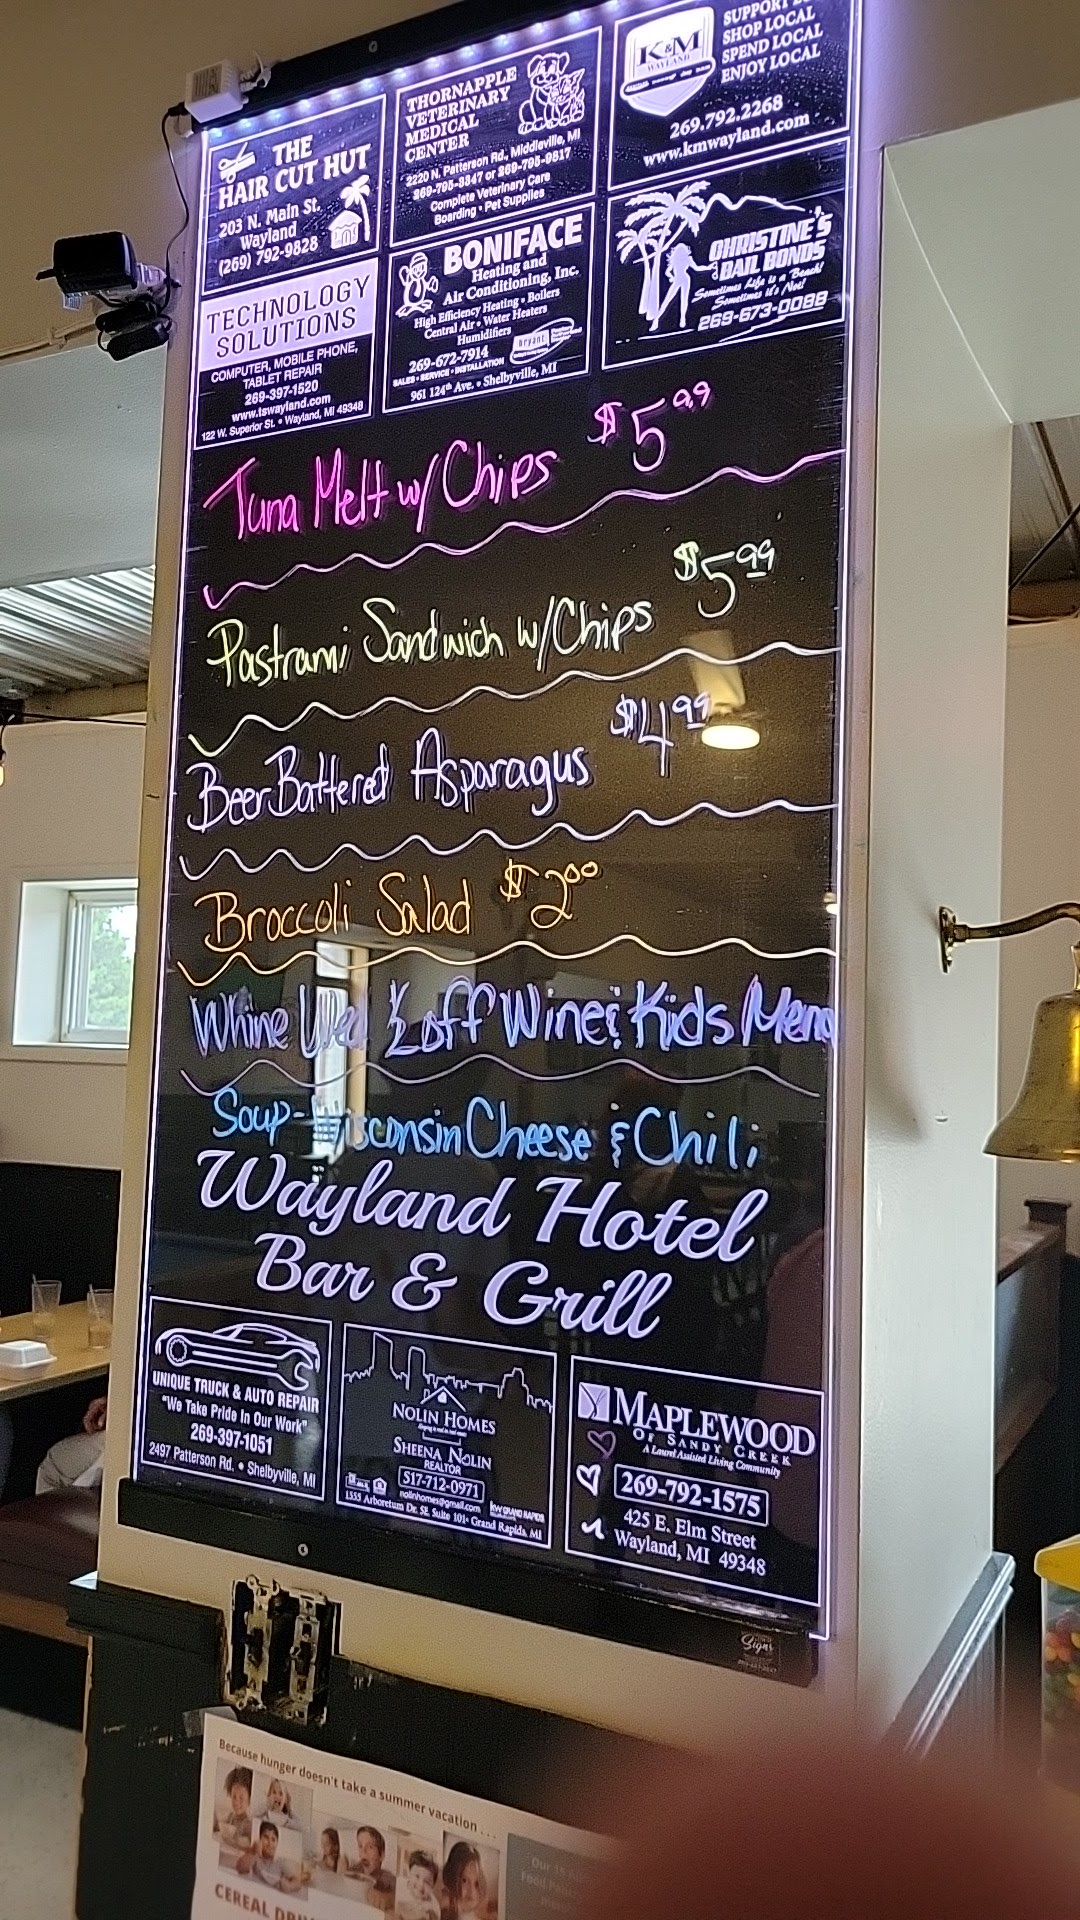 THE
HAIR CUT HUT
203 N. Main St.
Wayland
(269) 792-9828
THORNAPPLE
VETERINARY
MEDICAL
CENTER
2220 N. Patterson Rd., Middleville, MI
269-795-3347 or 269-795-9817
Complete Veterinary Care
Boarding • Pet Supplies
K&M
WAYLAND
SUPPORT
SHOP LOCAL
SPEND LOCAL
ENJOY LOCAL
269.792.2268
www.kmwayland.com
TECHNOLOGY
SOLUTIONS
COMPUTER, MOBILE PHONE,
TABLET REPAIR
269-397-1520
www.tswayland.com
122 W. Superior St. • Wayland, MI 49348
BONIFACE
Heating and
Air Conditioning, Inc.
High Efficiency Heating • Boilers
Central Air • Water Heaters
Humidifiers
bryant
269-672-7914
SALES • SERVICE • INSTALLATION
961 124th Ave. • Shelbyville, MI
CHRISTINE'S
BAIL BONDS
Sometimes Life is a Beach!
Sometimes it's Not!
269-673-0088
Tuna Melt w/ Chips $5.99
Pastrami Sandwich w/Chips $5 99
Beer Battered Asparagus $4 99
Broccoli Salad $2 00
Whine Wed ½ off Wine & Kids Menu
Soup-Wisconsin Cheese & Chili
Wayland Hotel
Bar & Grill
UNIQUE TRUCK & AUTO REPAIR
"We Take Pride In Our Work"
269-397-1051
2497 Patterson Rd. • Shelbyville, MI
NOLIN HOMES
SHEENA NOLIN
REALTOR
517-712-0971
nolinhomes@gmail.com
kw GRAND RAPIDS
1555 Arboretum Dr. SE, Suite 101 • Grand Rapids, MI
MAPLEWOOD
OF SANDY CREEK
A Laurel Assisted Living Community
269-792-1575
425 E. Elm Street
Wayland, MI 49348
Signs
Because hunger doesn't take a summer vacation . . .
CEREAL